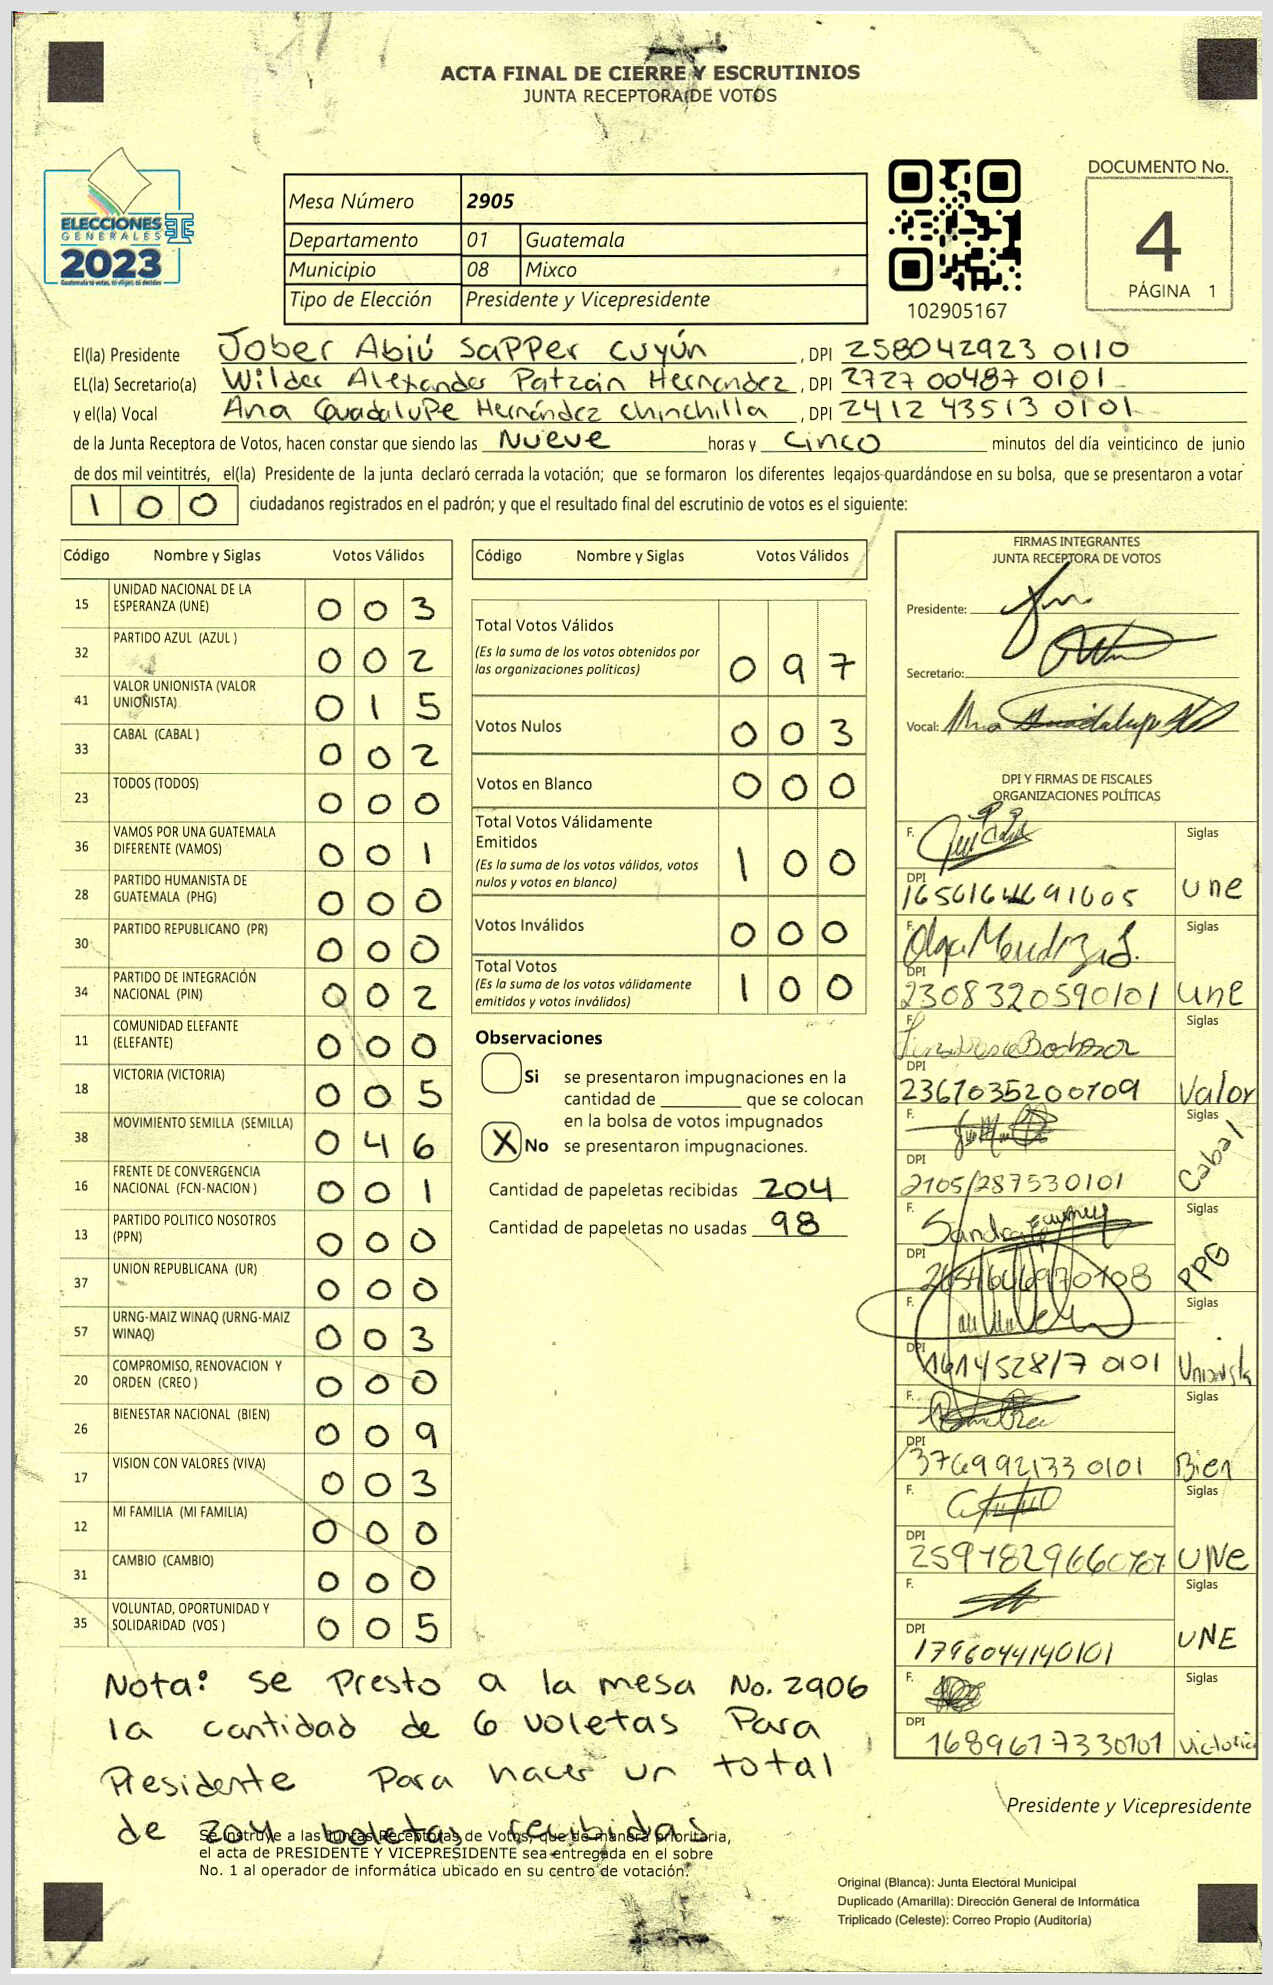 ACTA FINAL DE CIERRE Y ESCRUTINIOS
JUNTA RECEPTORA DE VOTOS
DOCUMENTO No.
4
PÁGINA 1
ELECCIONES
GENERALES
2023
Mesa Número 2905
Departamento 01 Guatemala
Municipio 08 Mixco
Tipo de Elección Presidente y Vicepresidente
102905167
El(la) Presidente Jober Abiú Sapper Cuyún, DPI 258042923 0110
EL(la) Secretario(a) Wilder Alexander Patzán Hernández, DPI 2727 00487 0101
y el(la) Vocal Ana Guadalupe Hernández Chinchilla, DPI 2412 43513 0101
de la Junta Receptora de Votos, hacen constar que siendo las Nueve horas y Cinco minutos del día veinticinco de junio
de dos mil veintitrés, el(la) Presidente de la junta declaró cerrada la votación; que se formaron los diferentes legajos guardándose en su bolsa, que se presentaron a votar
1 0 0 ciudadanos registrados en el padrón; y que el resultado final del escrutinio de votos es el siguiente:
Código Nombre y Siglas Votos Válidos
15 UNIDAD NACIONAL DE LA ESPERANZA (UNE) 0 0 3
32 PARTIDO AZUL (AZUL ) 0 0 2
41 VALOR UNIONISTA (VALOR UNIONISTA) 0 1 5
33 CABAL (CABAL ) 0 0 2
23 TODOS (TODOS) 0 0 0
36 VAMOS POR UNA GUATEMALA DIFERENTE (VAMOS) 0 0 1
28 PARTIDO HUMANISTA DE GUATEMALA (PHG) 0 0 0
30 PARTIDO REPUBLICANO (PR) 0 0 0
34 PARTIDO DE INTEGRACIÓN NACIONAL (PIN) 0 0 2
11 COMUNIDAD ELEFANTE (ELEFANTE) 0 0 0
18 VICTORIA (VICTORIA) 0 0 5
38 MOVIMIENTO SEMILLA (SEMILLA) 0 4 6
16 FRENTE DE CONVERGENCIA NACIONAL (FCN-NACION ) 0 0 1
13 PARTIDO POLITICO NOSOTROS (PPN) 0 0 0
37 UNION REPUBLICANA (UR) 0 0 0
57 URNG-MAIZ WINAQ (URNG-MAIZ WINAQ) 0 0 3
20 COMPROMISO, RENOVACION Y ORDEN (CREO ) 0 0 0
26 BIENESTAR NACIONAL (BIEN) 0 0 9
17 VISION CON VALORES (VIVA) 0 0 3
12 MI FAMILIA (MI FAMILIA) 0 0 0
31 CAMBIO (CAMBIO) 0 0 0
35 VOLUNTAD, OPORTUNIDAD Y SOLIDARIDAD (VOS ) 0 0 5
Código Nombre y Siglas Votos Válidos
Total Votos Válidos
(Es la suma de los votos obtenidos por
las organizaciones políticas) 0 9 7
Votos Nulos 0 0 3
Votos en Blanco 0 0 0
Total Votos Válidamente
Emitidos
(Es la suma de los votos válidos, votos
nulos y votos en blanco) 1 0 0
Votos Inválidos 0 0 0
Total Votos
(Es la suma de los votos válidamente
emitidos y votos inválidos) 1 0 0
Observaciones
Si se presentaron impugnaciones en la
cantidad de ________ que se colocan
en la bolsa de votos impugnados
X No se presentaron impugnaciones.
Cantidad de papeletas recibidas 204
Cantidad de papeletas no usadas 98
FIRMAS INTEGRANTES
JUNTA RECEPTORA DE VOTOS
Presidente:
Secretario:
Vocal:
DPI Y FIRMAS DE FISCALES
ORGANIZACIONES POLÍTICAS
F. Siglas
DPI une
F. Siglas
DPI 2308320590101 une
F. Siglas
DPI 2367035200709 Valor
F. Siglas
DPI Cabal
F. Sandra Siglas
DPI PPG
F. Siglas
DPI 0101 Unionista
F. Siglas
DPI 0101 Bien
F. Siglas
DPI UNe
F. Siglas
DPI 1796044140101 UNE
F. Siglas
DPI 1689617330101 Victoria
Nota: se Presto a la mesa No. 2906
la cantidad de 6 voletas Para
Presidente Para hacer un total
de 204 boletas recibidas
Se instruye a las Juntas Receptoras de Votos, que de manera prioritaria,
el acta de PRESIDENTE Y VICEPRESIDENTE sea entregada en el sobre
No. 1 al operador de informática ubicado en su centro de votación.
Presidente y Vicepresidente
Original (Blanca): Junta Electoral Municipal
Duplicado (Amarilla): Dirección General de Informática
Triplicado (Celeste): Correo Propio (Auditoría)